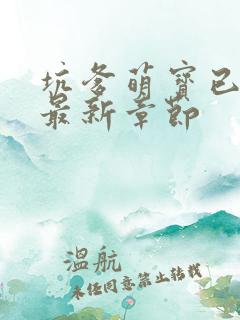 坑爹萌宝已
最新章节
温航
未经同意禁止转载